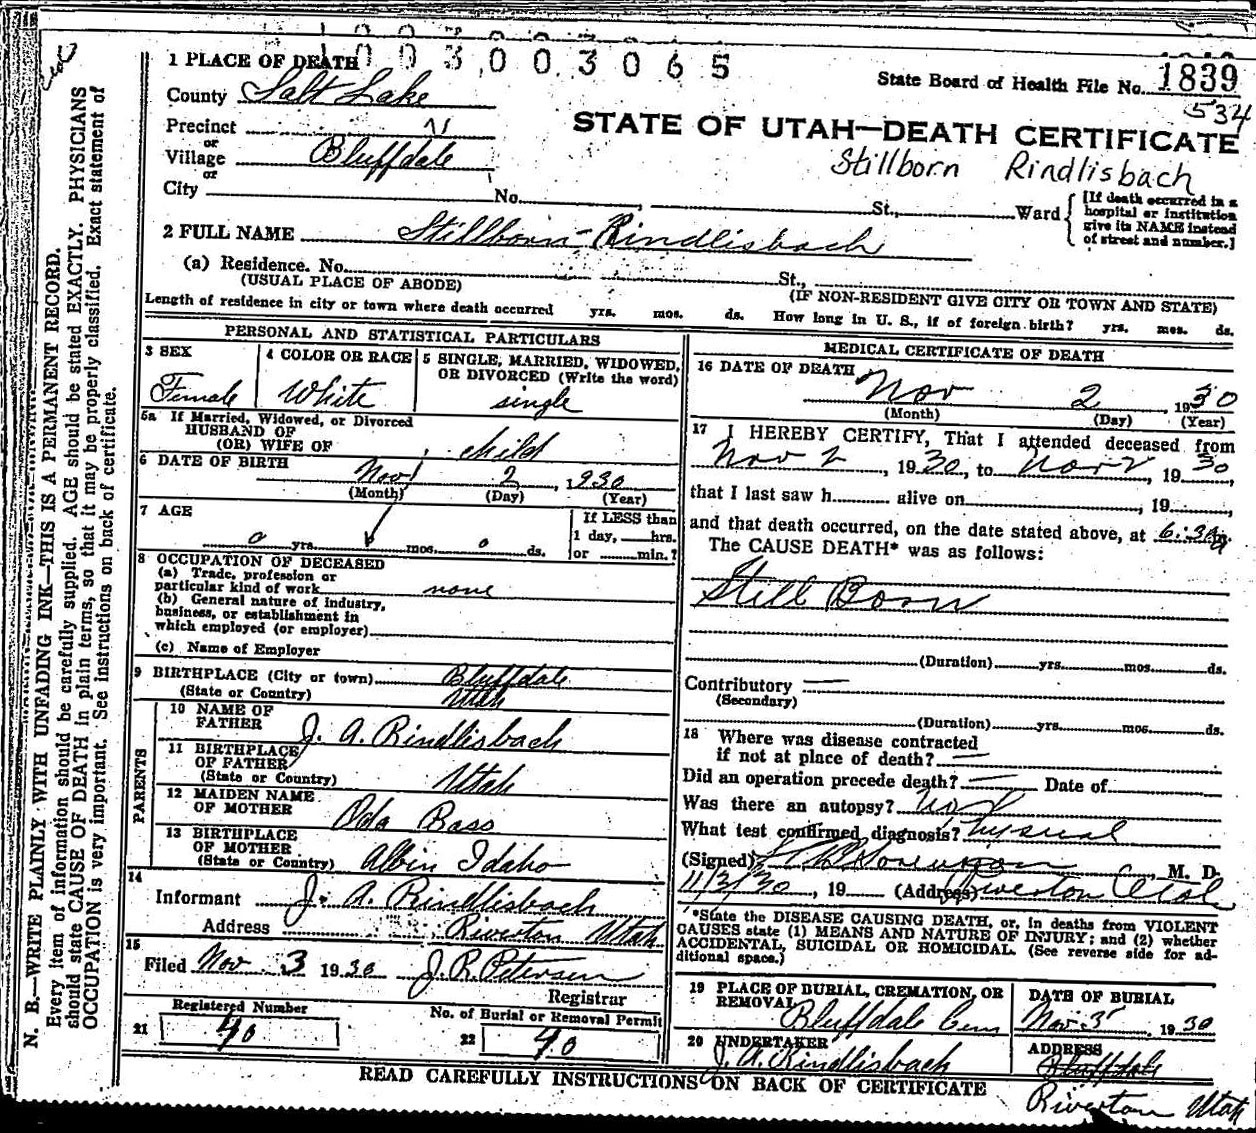 1003003065
1 PLACE OF DEATH
State Board of Health File No. 1839
534
County Salt Lake
STATE OF UTAH—DEATH CERTIFICATE
Precinct
or
Village Bluffdale
Stillborn Rindlisbach
or
City No. St., Ward
[If death occurred in a
hospital or institution
give its NAME instead
of street and number.]
2 FULL NAME Stillborn Rindlisbach
(a) Residence. No. St.,
(USUAL PLACE OF ABODE) (IF NON-RESIDENT GIVE CITY OR TOWN AND STATE)
Length of residence in city or town where death occurred yrs. mos. ds. How long in U. S., if of foreign birth? yrs. mos. ds.
PERSONAL AND STATISTICAL PARTICULARS
3 SEX
Female
4 COLOR OR RACE
White
5 SINGLE, MARRIED, WIDOWED,
OR DIVORCED (Write the word)
single
5a If Married, Widowed, or Divorced
HUSBAND OF
(OR) WIFE OF child
6 DATE OF BIRTH
Nov 2, 1930
(Month) (Day) (Year)
7 AGE
0 yrs. mos. 0 ds.
If LESS than
1 day, hrs.
or min.?
8 OCCUPATION OF DECEASED
(a) Trade, profession or
particular kind of work none
(b) General nature of industry,
business, or establishment in
which employed (or employer)
(c) Name of Employer
9 BIRTHPLACE (City or town) Bluffdale
(State or Country) Utah
PARENTS
10 NAME OF
FATHER J. A. Rindlisbach
11 BIRTHPLACE
OF FATHER
(State or Country) Utah
12 MAIDEN NAME
OF MOTHER Oda Bass
13 BIRTHPLACE
OF MOTHER
(State or Country) Albin Idaho
14
Informant J. A. Rindlisbach
Address Riverton Utah
15
Filed Nov 3 1930 J. R. Petersen
Registrar
Registered Number
21 40
No. of Burial or Removal Permit
22 40
MEDICAL CERTIFICATE OF DEATH
16 DATE OF DEATH
Nov 2, 1930
(Month) (Day) (Year)
17 I HEREBY CERTIFY, That I attended deceased from
Nov 2, 1930, to Nov 2, 1930,
that I last saw h alive on , 19 ,
and that death occurred, on the date stated above, at 6:30
The CAUSE DEATH* was as follows:
Still Born
(Duration) yrs. mos. ds.
Contributory —
(Secondary)
(Duration) yrs. mos. ds.
18 Where was disease contracted
if not at place of death? —
Did an operation precede death? — Date of
Was there an autopsy?
What test confirmed diagnosis?
(Signed) , M. D.
11/3/30, 19 (Address) Riverton Utah
*State the DISEASE CAUSING DEATH, or, in deaths from VIOLENT
CAUSES state (1) MEANS AND NATURE OF INJURY; and (2) whether
ACCIDENTAL, SUICIDAL OR HOMICIDAL. (See reverse side for ad-
ditional space.)
19 PLACE OF BURIAL, CREMATION, OR
REMOVAL
Bluffdale Cem
DATE OF BURIAL
Nov 3 1930
20 UNDERTAKER
J. A. Rindlisbach
ADDRESS
Bluffdale
Riverton Utah
READ CAREFULLY INSTRUCTIONS ON BACK OF CERTIFICATE
N. B.—WRITE PLAINLY WITH UNFADING INK—THIS IS A PERMANENT RECORD.
Every item of information should be carefully supplied. AGE should be stated EXACTLY. PHYSICIANS
should state CAUSE OF DEATH in plain terms, so that it may be properly classified. Exact statement of
OCCUPATION is very important. See instructions on back of certificate.